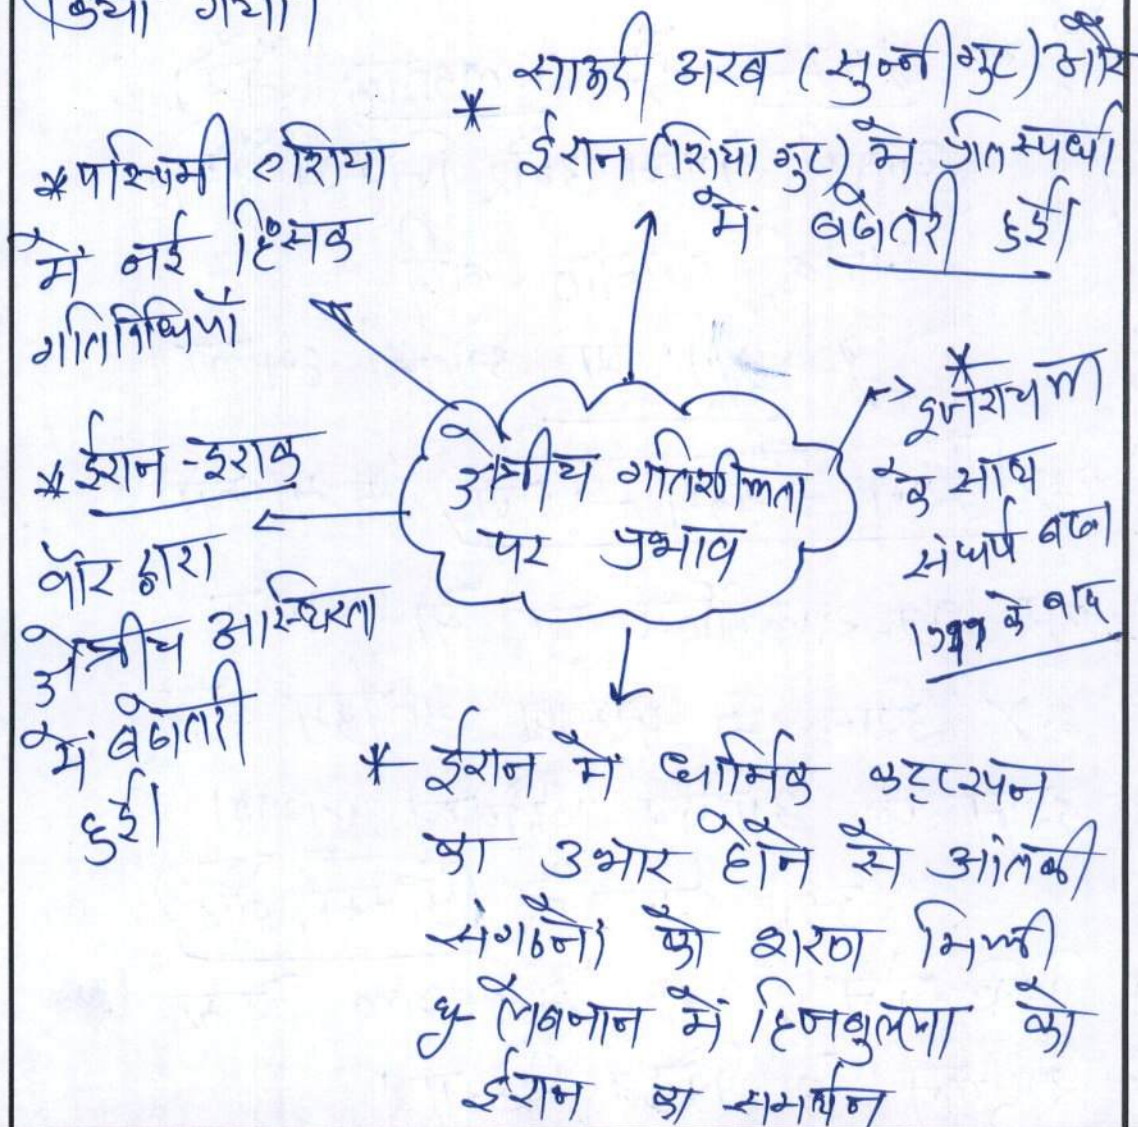 किया गया।
* साऊदी अरब (सुन्नी गुट) और
ईरान (शिया गुट) में प्रतिस्पर्धा
में बढोतरी हुई।
* पश्चिमी एशिया
में नई हिंसक
गतिविधियाँ
* ईरान-इराक
वॉर द्वारा
क्षेत्रीय अस्थिरता
में बढोतरी
हुई।
क्षेत्रीय गतिशीलता
पर प्रभाव
*
इजरायल
के साथ
संघर्ष बढा
के बाद
* ईरान में धार्मिक कट्टरपन
का उभार होने से आंतकी
संगठनों को शरण मिली
लेबनान में हिजबुल्ला को
ईरान का समर्थन